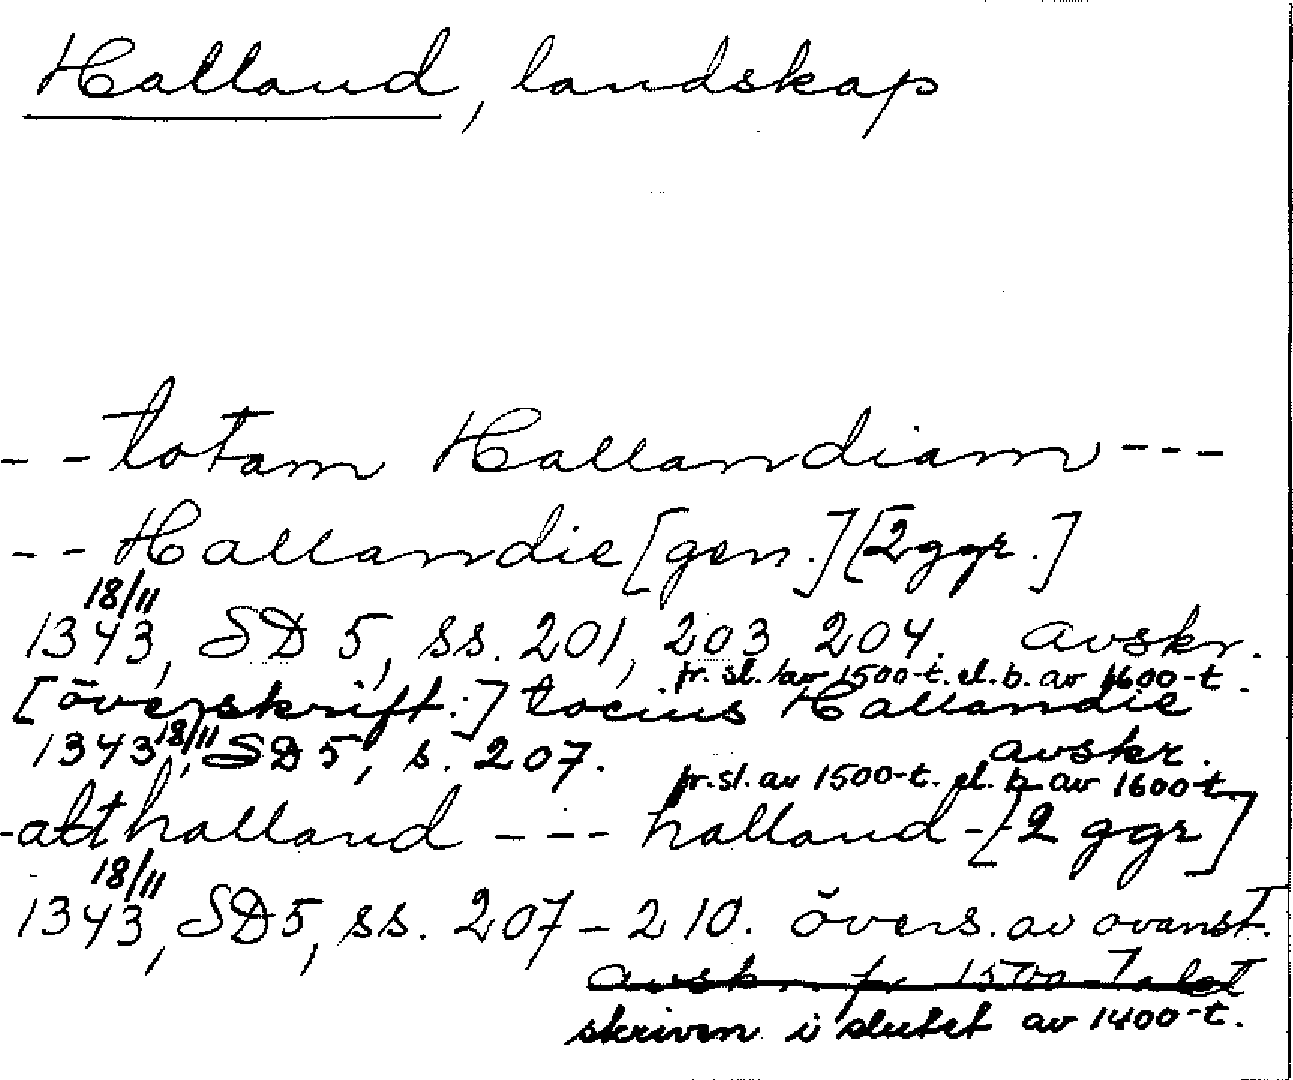 Halland, landskap
-- totam Hallandiam ---
-- Hallandie [gen.] [2 ggr.]
18/11
1343, SD 5, ss. 201, 203, 204. avskr.
fr. sl. av 1500-t. el. b. av 1600-t.
[överskrift:] tocius Hallandie
1343 18/11, SD 5, s. 207. avskr.
fr. sl. av 1500-t. el. b. av 1600-t.
-alt halland --- halland -[2 ggr]
18/11
1343, SD 5, ss. 207-210. övers. av ovanst.
avskr. fr 1500-talet
skriven i slutet av 1400-t.